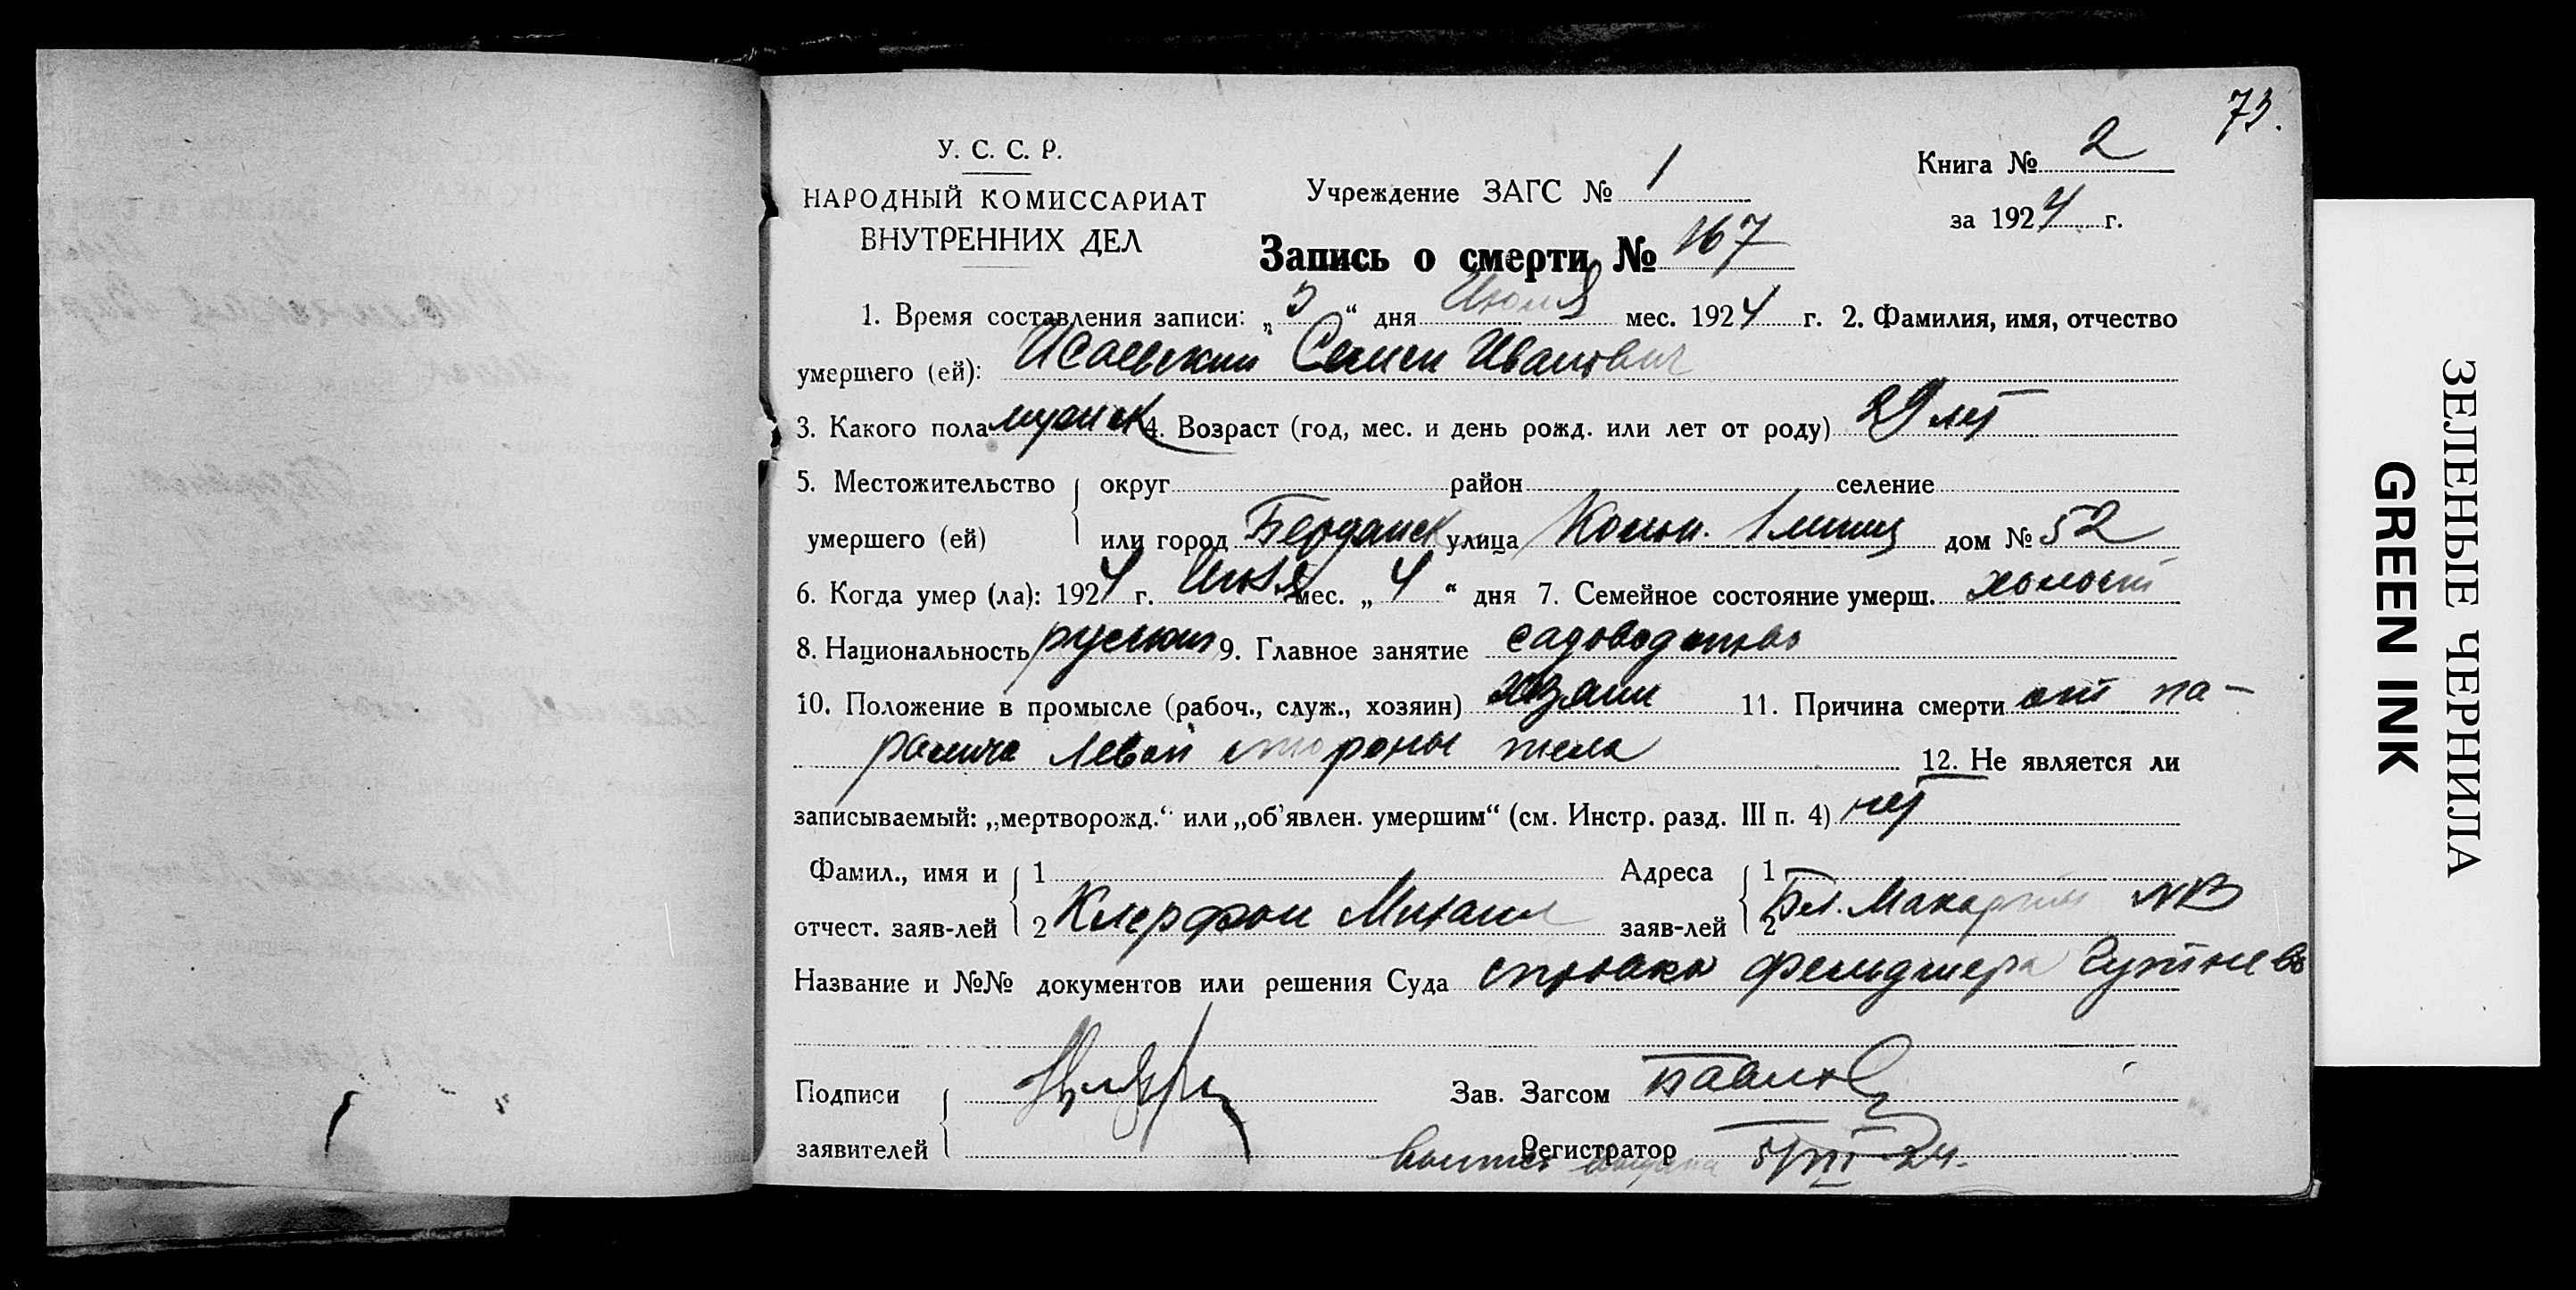 73.
У. С. С. Р.
НАРОДНЫЙ КОМИССАРИАТ
ВНУТРЕННИХ ДЕЛ
Учреждение ЗАГС № 1
Книга № 2
за 1924 г.
Запись о смерти № 167
1. Время составления записи: „5“ дня Июля мес. 1924 г. 2. Фамилия, имя, отчество
умершего (ей): Исаевский Семен Иванович
3. Какого пола мужск 4. Возраст (год, мес. и день рожд. или лет от роду) 29 лет
5. Местожительство округ район селение
умершего (ей) или город Бердянск улица Колон. 1 линия дом № 52
6. Когда умер (ла): 1924 г. Июля мес. „4“ дня 7. Семейное состояние умерш. холост
8. Национальность русский 9. Главное занятие садоводство
10. Положение в промысле (рабоч., служ., хозяин) хозяин 11. Причина смерти от па-
ралича левой стороны тела 12. Не является ли
записываемый: „мертворожд.“ или „об'явлен. умершим“ (см. Инстр. разд. III п. 4) нет
Фамил., имя и 1 Адреса 1
отчест. заяв-лей 2 Клерфон Михаил заяв-лей 2
Название и №№ документов или решения Суда справка фельдшера
Подписи Зав. Загсом Павлов
заявителей Регистратор
ЗЕЛЕНЫЕ ЧЕРНИЛА
GREEN INK